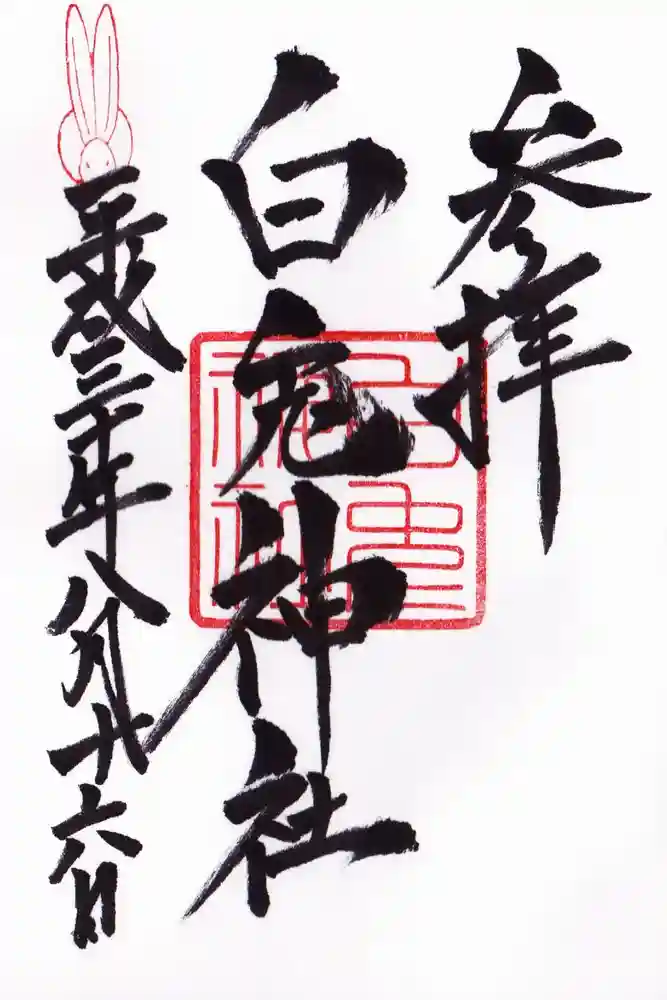 参拝
白兎神社
平成三十年八月十六日
白兎
神社